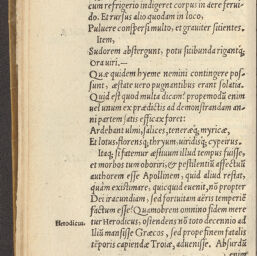 cum refrigerio indigeret corpus in dere ferui-
do. Et rursus alio quodam in loco,
Puluere conspersi multo, et grauiter sitientes.
Item,
Sudorem abstergunt, potu sitibunda rigantq́;
Ora uiri.—
Quæ quidem hyeme nemini contingere pos-
sunt, æstate uero pugnantibus erant solatia.
Quid est quod multa dicam? propemodū enim
uel unum ex prædictis ad demonstrandam an-
ni partem satis efficax foret:
Ardebant ulmi, salices, teneræq́; myricæ,
Et lotus, florensq́; thryum, uiridisq́; cypeirus.
Itaq; si fatemur æstiuum illud tempus fuisse,
et morbos tum oboriri, & pestilentiū affectuū
authorem esse Apollinem, quid aliud restat,
quàm existimare, quicquid euenit, nō propter
Dei iracundiam, sed fortuitam aëris temperiē
factum esse? Quamobrem omnino fidem mere
tur Herodicus, ostendens nō toto decennio ad
Herodicus.
Iliū mansisse Græcos, sed prope finem fatalis
tēporis capiendæ Troiæ, aduenisse. Absurdū
enim